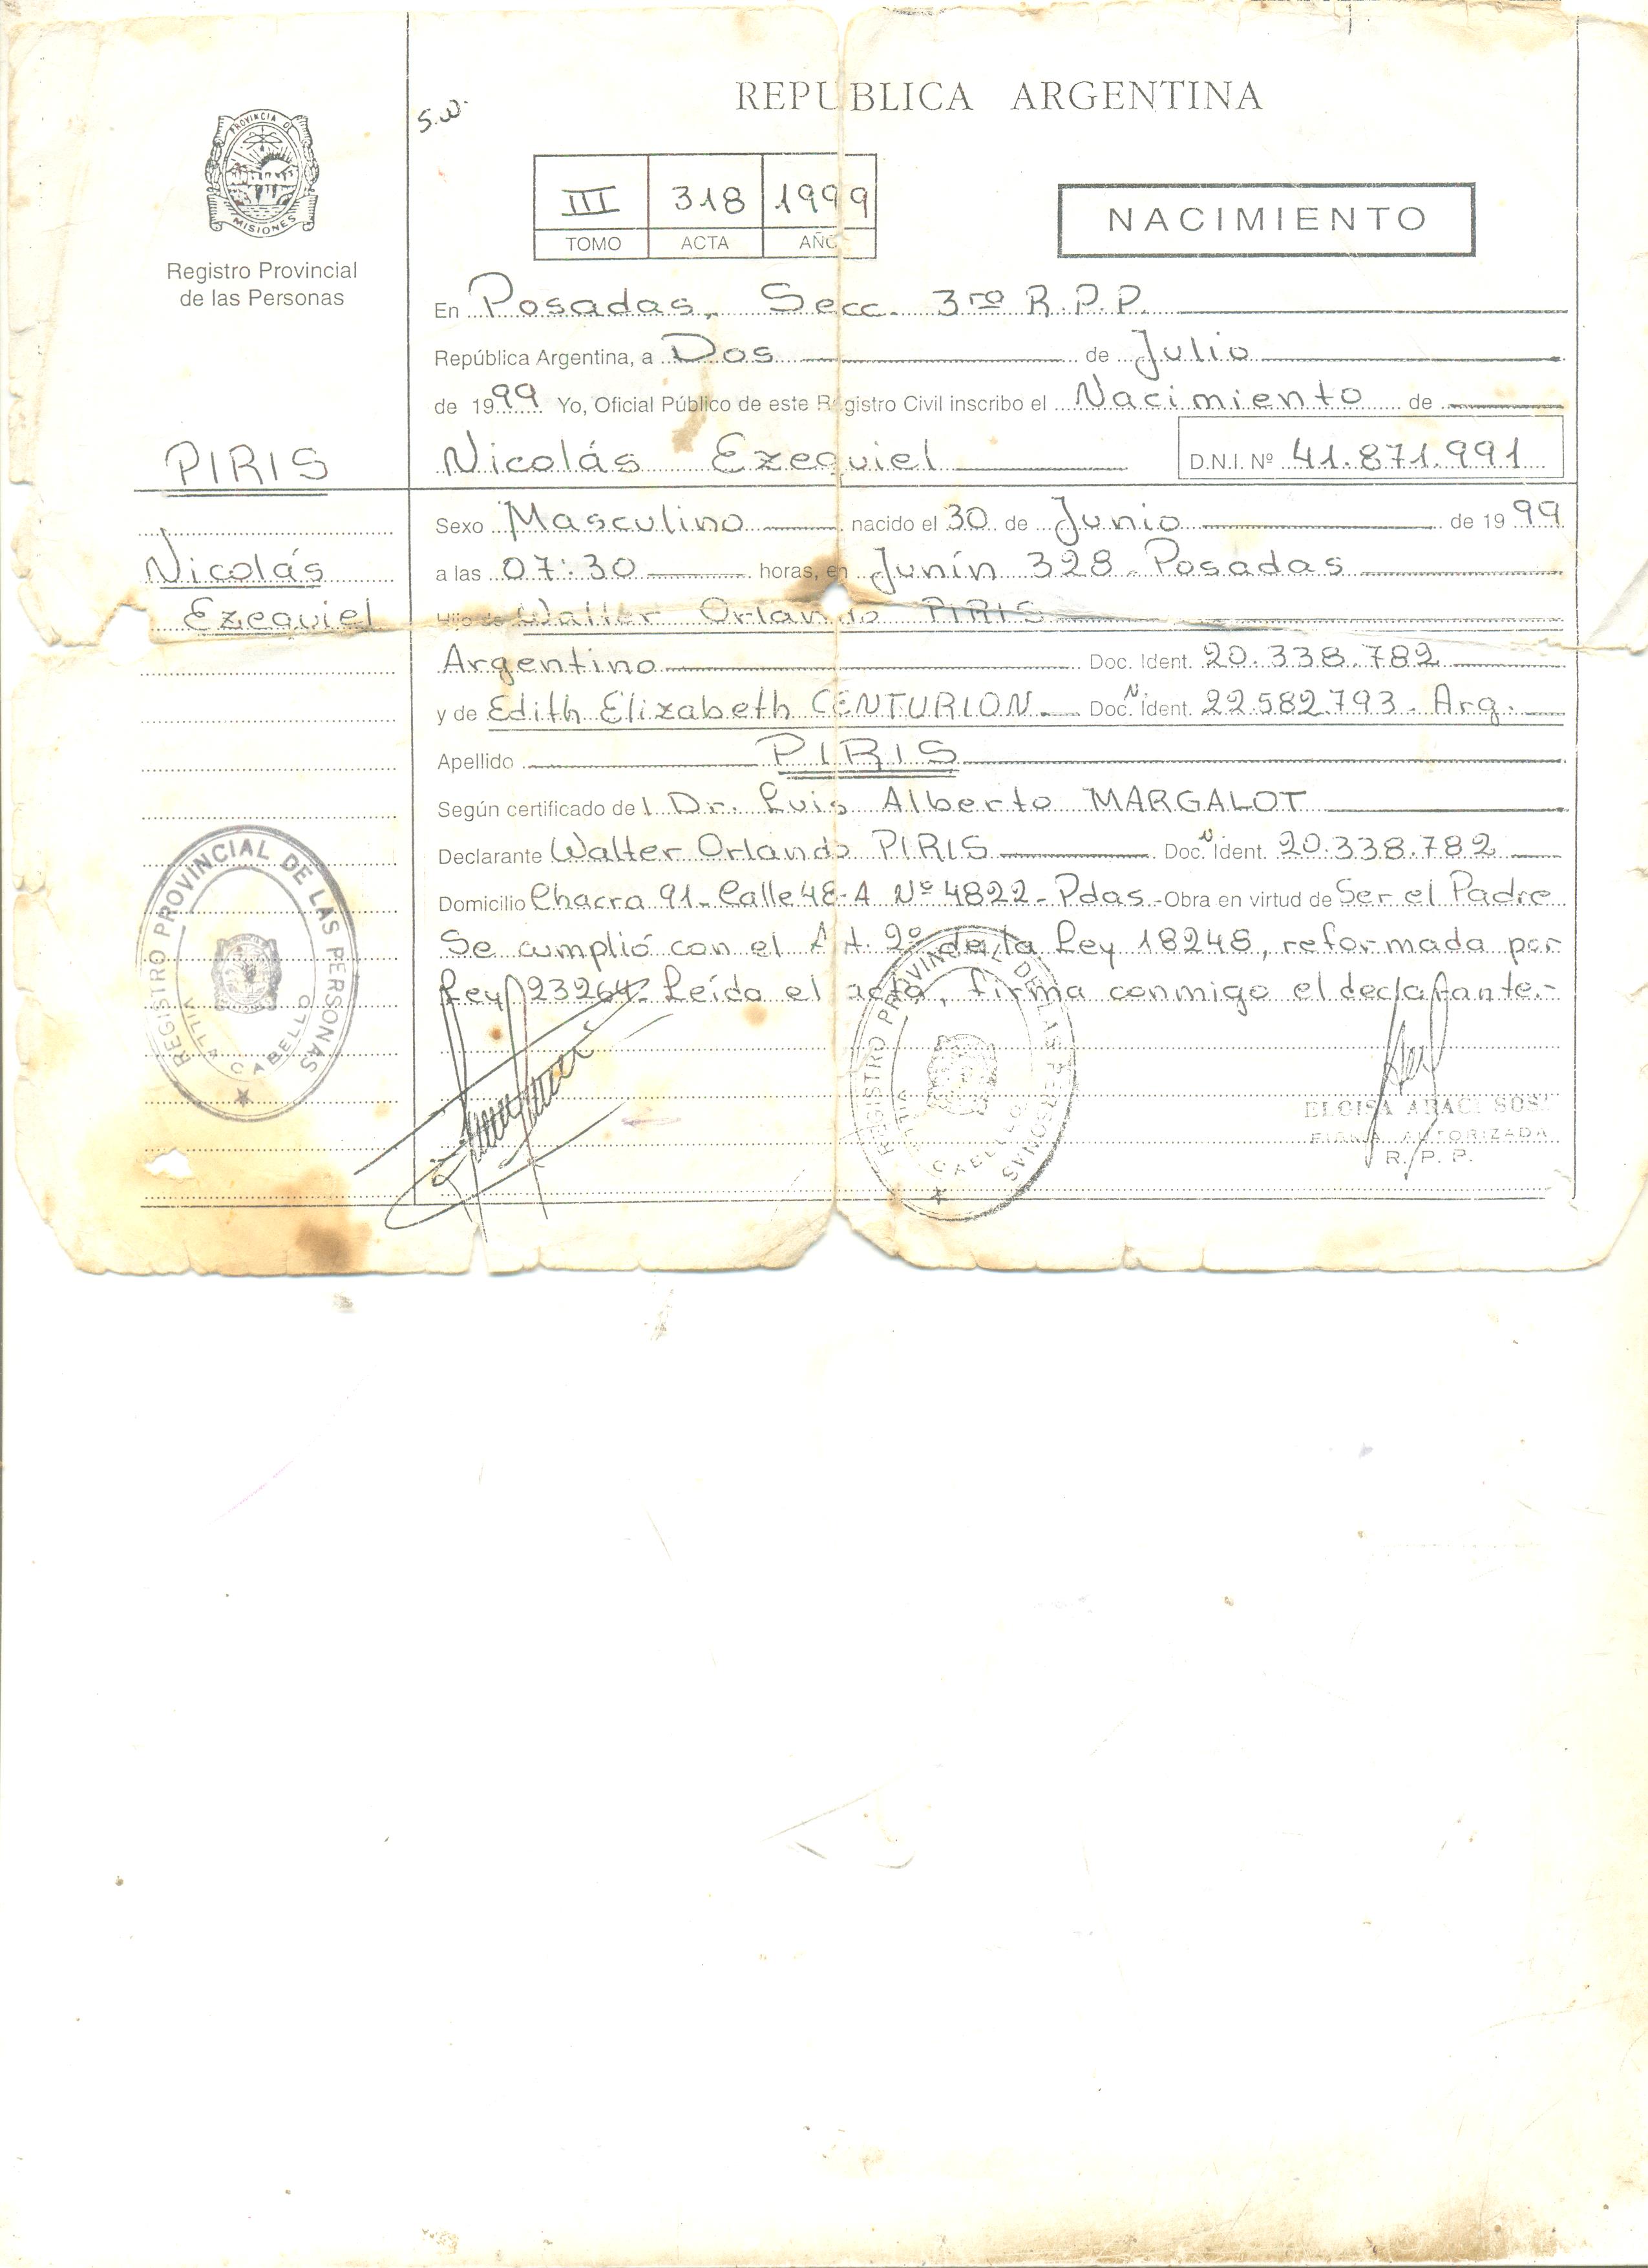 REPUBLICA ARGENTINA
S.W.
PROVINCIA DE
MISIONES
Registro Provincial
de las Personas
III 318 1999
TOMO ACTA AÑO
NACIMIENTO
En Posadas, Secc. 3ra R.P.P.
República Argentina, a Dos de Julio
de 1999 Yo, Oficial Público de este Registro Civil inscribo el Nacimiento de
PIRIS
Nicolás Ezequiel
Nicolás Ezequiel D.N.I. Nº 41.871.991
Sexo Masculino nacido el 30 de Junio de 1999
a las 07:30 horas, en Junín 328 - Posadas
Hijo de Walter Orlando PIRIS
Argentino Doc. Ident. 20.338.782
y de Edith Elizabeth CENTURION Doc. N Ident. 22.582.793 - Arg.
Apellido PIRIS
Según certificado del Dr. Luis Alberto MARGALOT
Declarante Walter Orlando PIRIS Doc. N Ident. 20.338.782
Domicilio Chacra 91 - Calle 48-A Nº 4822 - Pdas - Obra en virtud de Ser el Padre
Se cumplió con el Art. 2º de la Ley 18248, reformada por
Ley 23264. Leída el acta, firma conmigo el declarante.-
REGISTRO PROVINCIAL DE LAS PERSONAS
VILLA CABELLO
REGISTRO PROVINCIAL DE LAS PERSONAS
VILLA CABELLO
FIRMA AUTORIZADA
R. P. P.